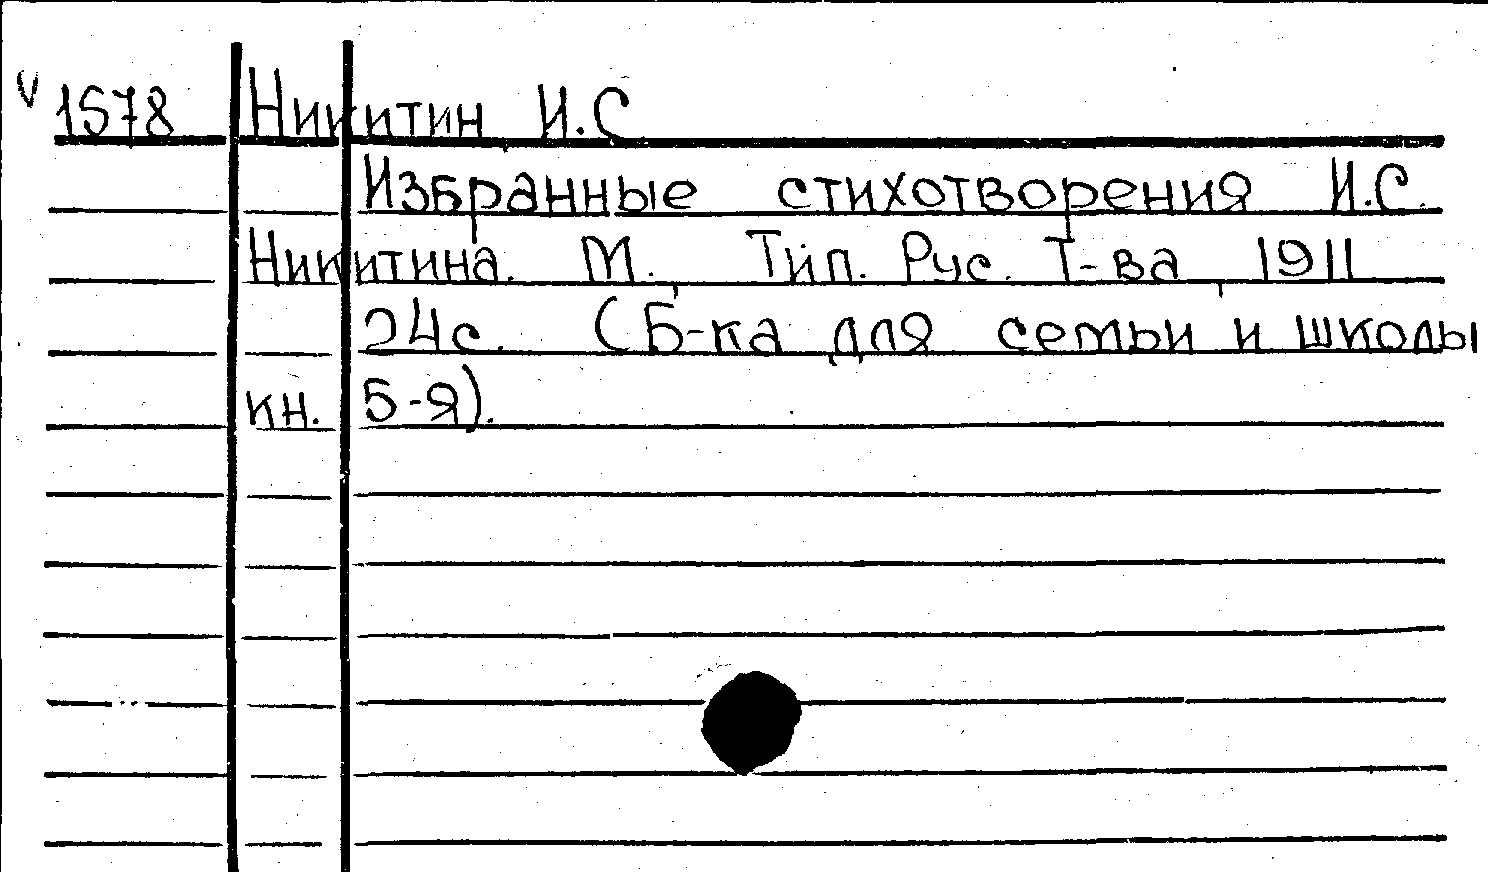 V 1578 Никитин И.С
Избранные стихотворения И.С.
Никитина. М. Тип. Рус. Т-ва 1911
24с. (Б-ка для семьи и школы
кн. 5-я).